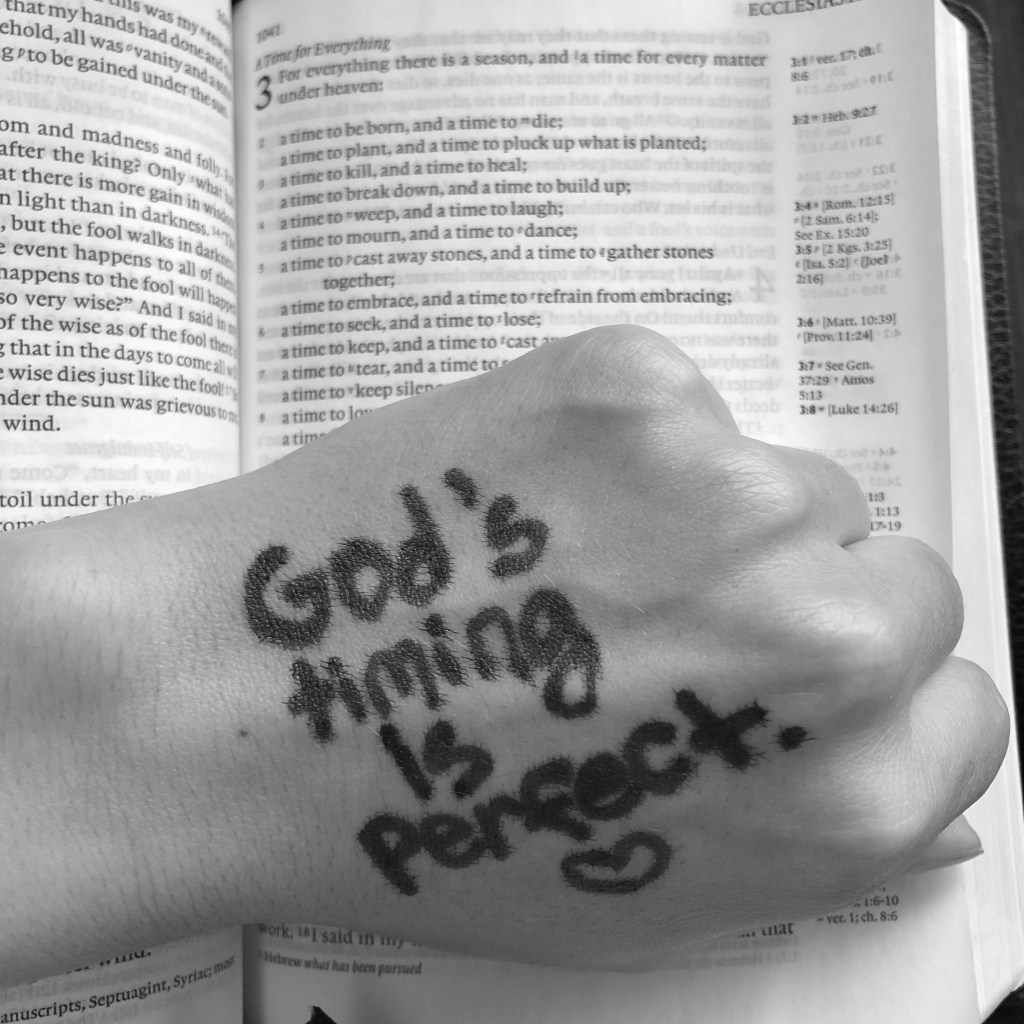 this was my
that my hands had done and
ehold, all was vanity and a
to be gained under the sun
om and madness and folly.
after the king? Only what
at there is more gain in wisdom
n light than in darkness.
, but the fool walks in darkness
e event happens to all of them
happens to the fool will happen
so very wise?” And I said in
of the wise as of the fool there
g that in the days to come all
e wise dies just like the fool!
nder the sun was grievous to me
wind.
toil under the
1041
ECCLESIAS
A Time for Everything
3 For everything there is a season, and a time for every matter
under heaven:
2 a time to be born, and a time to die;
a time to plant, and a time to pluck up what is planted;
3 a time to kill, and a time to heal;
a time to break down, and a time to build up;
4 a time to weep, and a time to laugh;
a time to mourn, and a time to dance;
5 a time to cast away stones, and a time to gather stones
together;
a time to embrace, and a time to refrain from embracing;
6 a time to seek, and a time to lose;
a time to keep, and a time to cast
7 a time to tear, and a time to
a time to keep silence
8 a time to lo
a time
3:1 ver. 17; ch.
8:6
3:2 Heb. 9:27
3:4 [Rom. 12:15]
[2 Sam. 6:14];
See Ex. 15:20
3:5 [2 Kgs. 3:25]
[Isa. 5:2] (Joel
2:16]
3:6 [Matt. 10:39]
[Prov. 11:24]
3:7 See Gen.
37:29 Amos
5:13
3:8 [Luke 14:26]
1:3
1:13
17-19
God's
timing
is
perfect.
1:6-10
ver. 1; ch. 8:6
work. 18 I said in my
that
Hebrew what has been pursued
wind.
anuscripts, Septuagint, Syriac; most